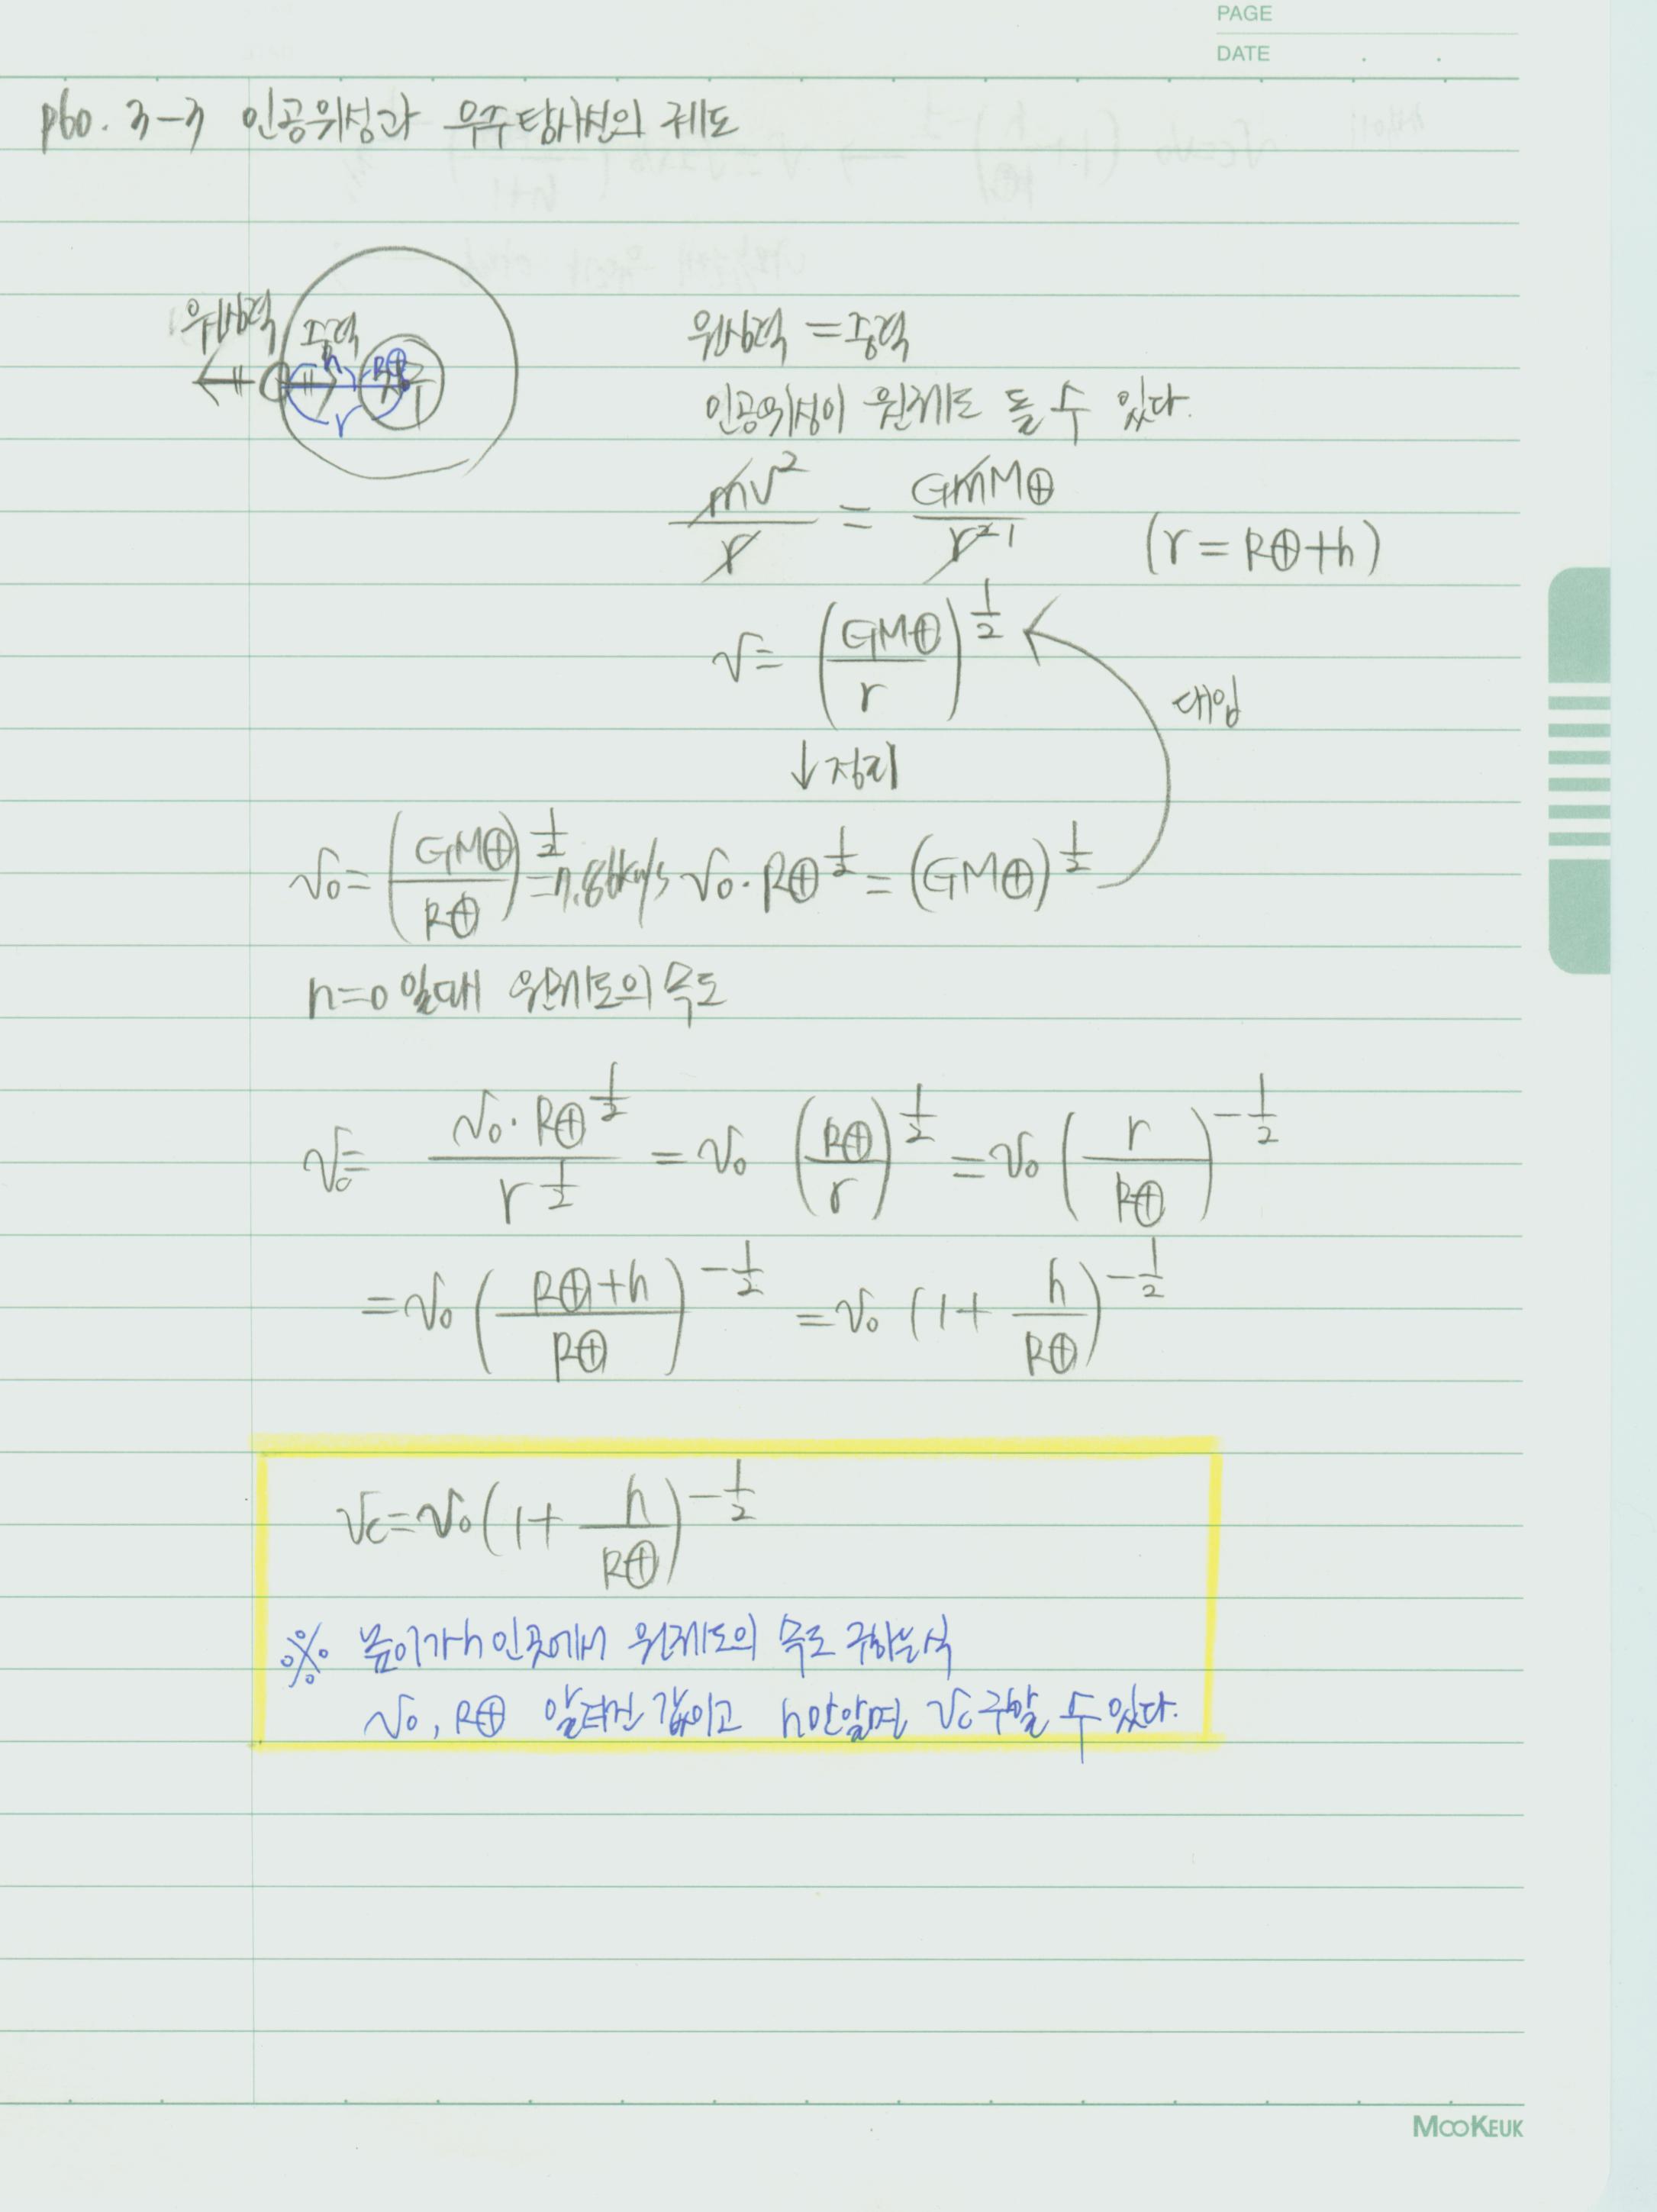 PAGE
DATE . .
p60. 3-3 인공위성과 우주탐사선의 궤도
원심력 중력
h R⊕
r
원심력 = 중력
인공위성이 원궤도 돌 수 있다.
mv²/r = GmM⊕/r² 1 (r = R⊕+h)
v = (GM⊕/r)^½
대입
↓정리
v₀ = (GM⊕/R⊕)^½ = 7.86km/s v₀·R⊕^½ = (GM⊕)^½
h=0일때 원궤도의 속도
Vc = v₀·R⊕^½/r^½ = v₀ (R⊕/r)^½ = v₀ (r/R⊕)^-½
= v₀ (R⊕+h/R⊕)^-½ = v₀ (1+ h/R⊕)^-½
Vc = v₀ (1+ h/R⊕)^-½
※ 높이가 h인곳에서 원궤도의 속도 구하는식
v₀, R⊕ 알려진 값이고 h만알면 Vc 구할 수 있다.
MOOKEUK